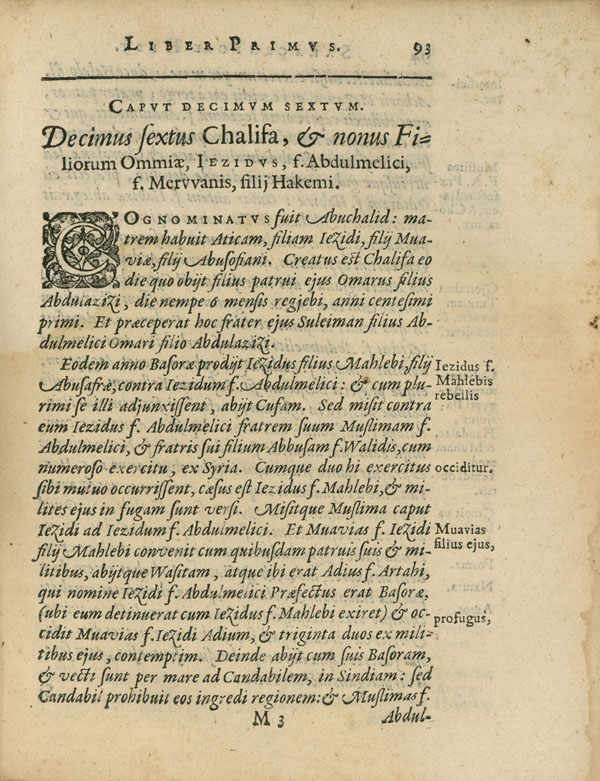 LIBER PRIMVS. 93
CAPVT DECIMVM SEXTVM.
Decimus sextus Chalifa, & nonus Fi-
liorum Ommiæ, IEZIDVS, f. Abdulmelici,
f. Mervvanis, filij Hakemi.
COGNOMINATVS fuit Abuchalid: ma-
trem habuit Aticam, filiam Iezidi, filij Mua-
viæ, filij Abusofiani. Creatus est Chalifa eo
die quo obijt filius patrui ejus Omarus filius
Abdulazizi, die nempe 6 mensis regjebi, anni centesimi
primi. Et præceperat hoc frater ejus Suleiman filius Ab-
dulmelici Omari filio Abdulazizi.
Eodem anno Basoræ prodijt Iezidus filius Mahlebi, filij Iezidus f.
Abusafræ, contra Iezidum f. Abdulmelici: & cum plu- Mahlebis
rimi se illi adjunxissent, abijt Cufam. Sed misit contra rebellis
eum Iezidus f. Abdulmelici fratrem suum Muslimam f.
Abdulmelici, & fratris sui filium Abbusam f. Walidis, cum
numeroso exercitu, ex Syria. Cumque duo hi exercitus occiditur.
sibi mutuo occurrissent, cæsus est Iezidus f. Mahlebi, & mi-
lites ejus in fugam sunt versi. Misitque Muslima caput
Iezidi ad Iezidum f. Abdulmelici. Et Muavias f. Iezidi Muavias
filij Mahlebi convenit cum quibusdam patruis suis & mi- filius ejus,
litibus, abijtque Wasitam, atque ibi erat Adius f. Artahi,
qui nomine Iezidi f. Abdulmelici Præfectus erat Basoræ,
(ubi eum detinuerat cum Iezidus f. Mahlebi exiret) & oc- profugus,
cidit Muavias f. Iezidi Adium, & triginta duos ex mili-
tibus ejus, contemptim. Deinde abijt cum suis Basoram,
& vecti sunt per mare ad Candabilem, in Sindiam: sed
Candabil prohibuit eos ingredi regionem: & Muslimas f.
M 3 Abdul-